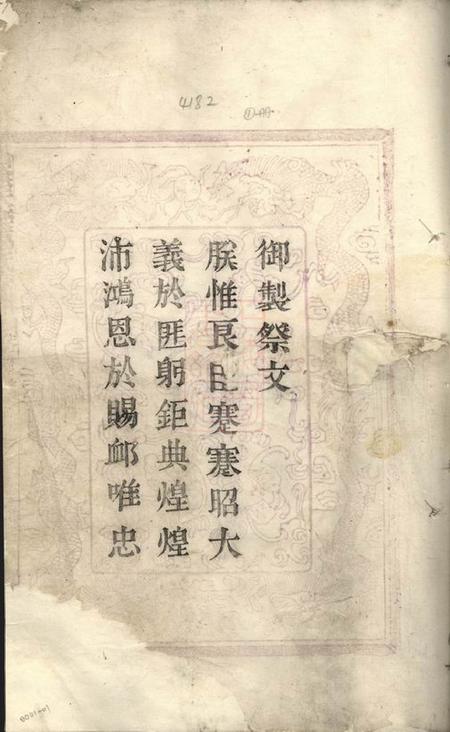 4182
御製祭文
朕惟良臣蹇蹇昭大
義於匪躬鉅典煌煌
沛鴻恩於賜卹唯忠